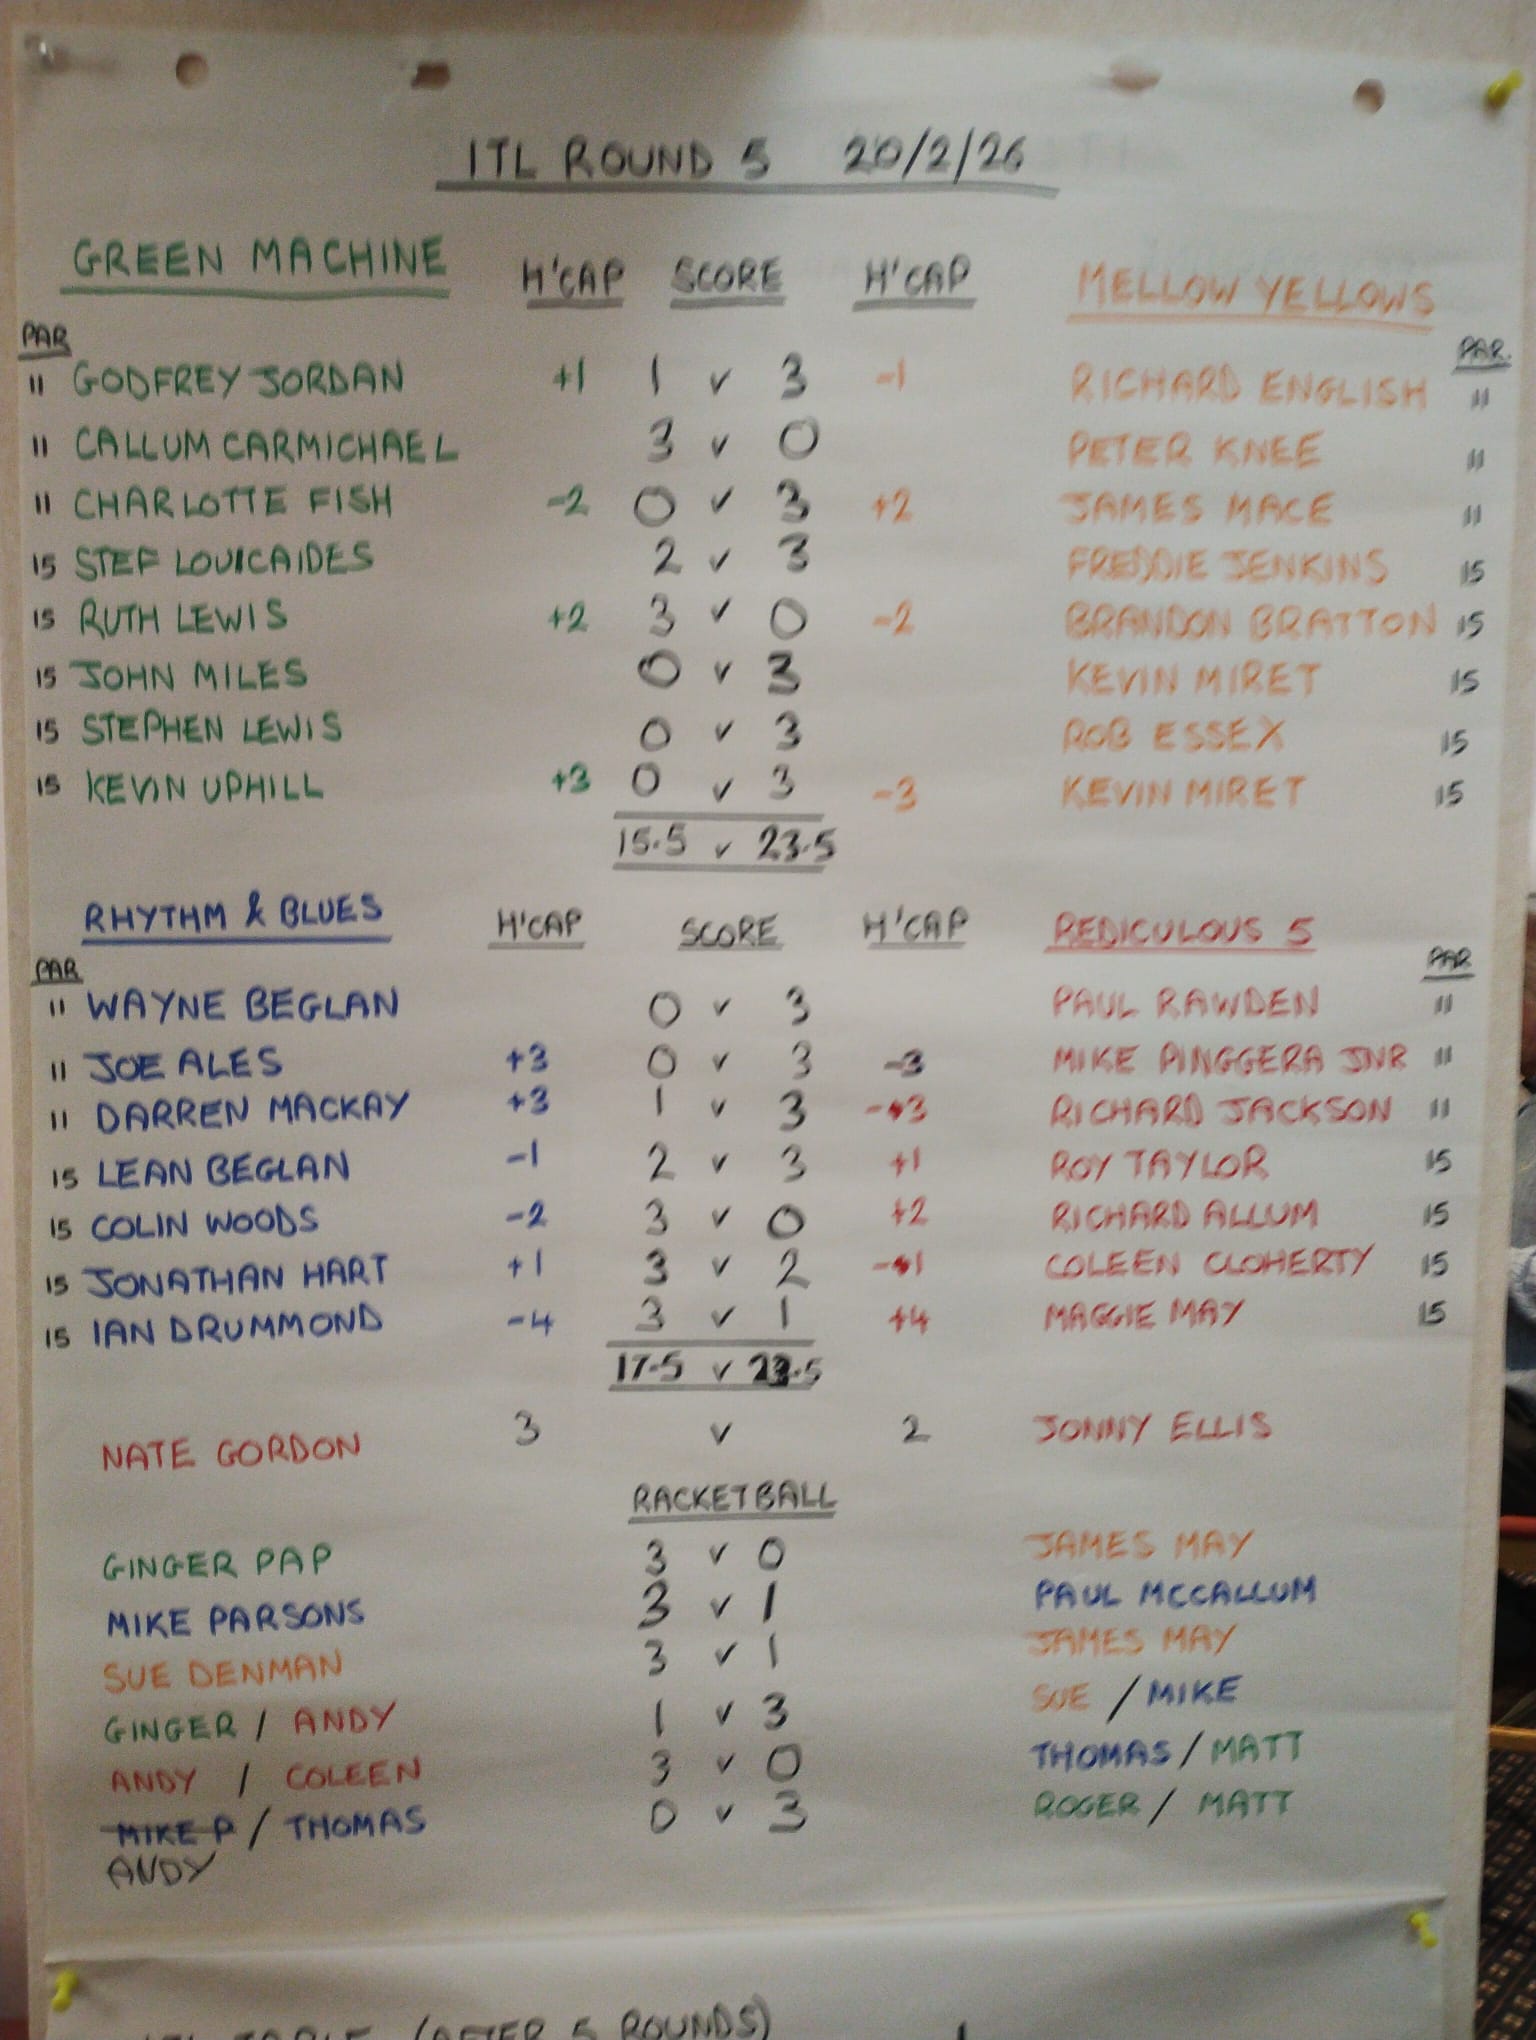 ITL ROUND 5 20/2/26
GREEN MACHINE H'CAP SCORE H'CAP MELLOW YELLOWS
PAR PAR.
11 GODFREY JORDAN +1 1 v 3 -1 RICHARD ENGLISH 11
11 CALLUM CARMICHAEL 3 v 0 PETER KNEE 11
11 CHARLOTTE FISH -2 0 v 3 +2 JAMES MACE 11
15 STEF LOUICAIDES 2 v 3 FREDDIE JENKINS 15
15 RUTH LEWIS +2 3 v 0 -2 BRANDON BRATTON 15
15 JOHN MILES 0 v 3 KEVIN MIRET 15
15 STEPHEN LEWIS 0 v 3 ROB ESSEX 15
15 KEVIN UPHILL +3 0 v 3 -3 KEVIN MIRET 15
15.5 v 23.5
RHYTHM & BLUES H'CAP SCORE H'CAP REDICULOUS 5
PAR PAR
11 WAYNE BEGLAN 0 v 3 PAUL RAWDEN 11
11 JOE ALES +3 0 v 3 -3 MIKE PINGGERA JNR 11
11 DARREN MACKAY +3 1 v 3 -3 RICHARD JACKSON 11
15 LEAN BEGLAN -1 2 v 3 +1 ROY TAYLOR 15
15 COLIN WOODS -2 3 v 0 +2 RICHARD ALLUM 15
15 JONATHAN HART +1 3 v 2 -1 COLEEN CLOHERTY 15
15 IAN DRUMMOND -4 3 v 1 +4 MAGGIE MAY 15
17.5 v
NATE GORDON 3 v 2 JONNY ELLIS
RACKETBALL
GINGER PAP 3 v 0 JAMES MAY
MIKE PARSONS 3 v 1 PAUL MCCALLUM
SUE DENMAN 3 v 1 JAMES MAY
GINGER / ANDY 1 v 3 SUE / MIKE
ANDY / COLEEN 3 v 0 THOMAS / MATT
MIKE P / THOMAS 0 v 3 ROGER / MATT
ANDY
ITL TABLE (AFTER 5 ROUNDS)